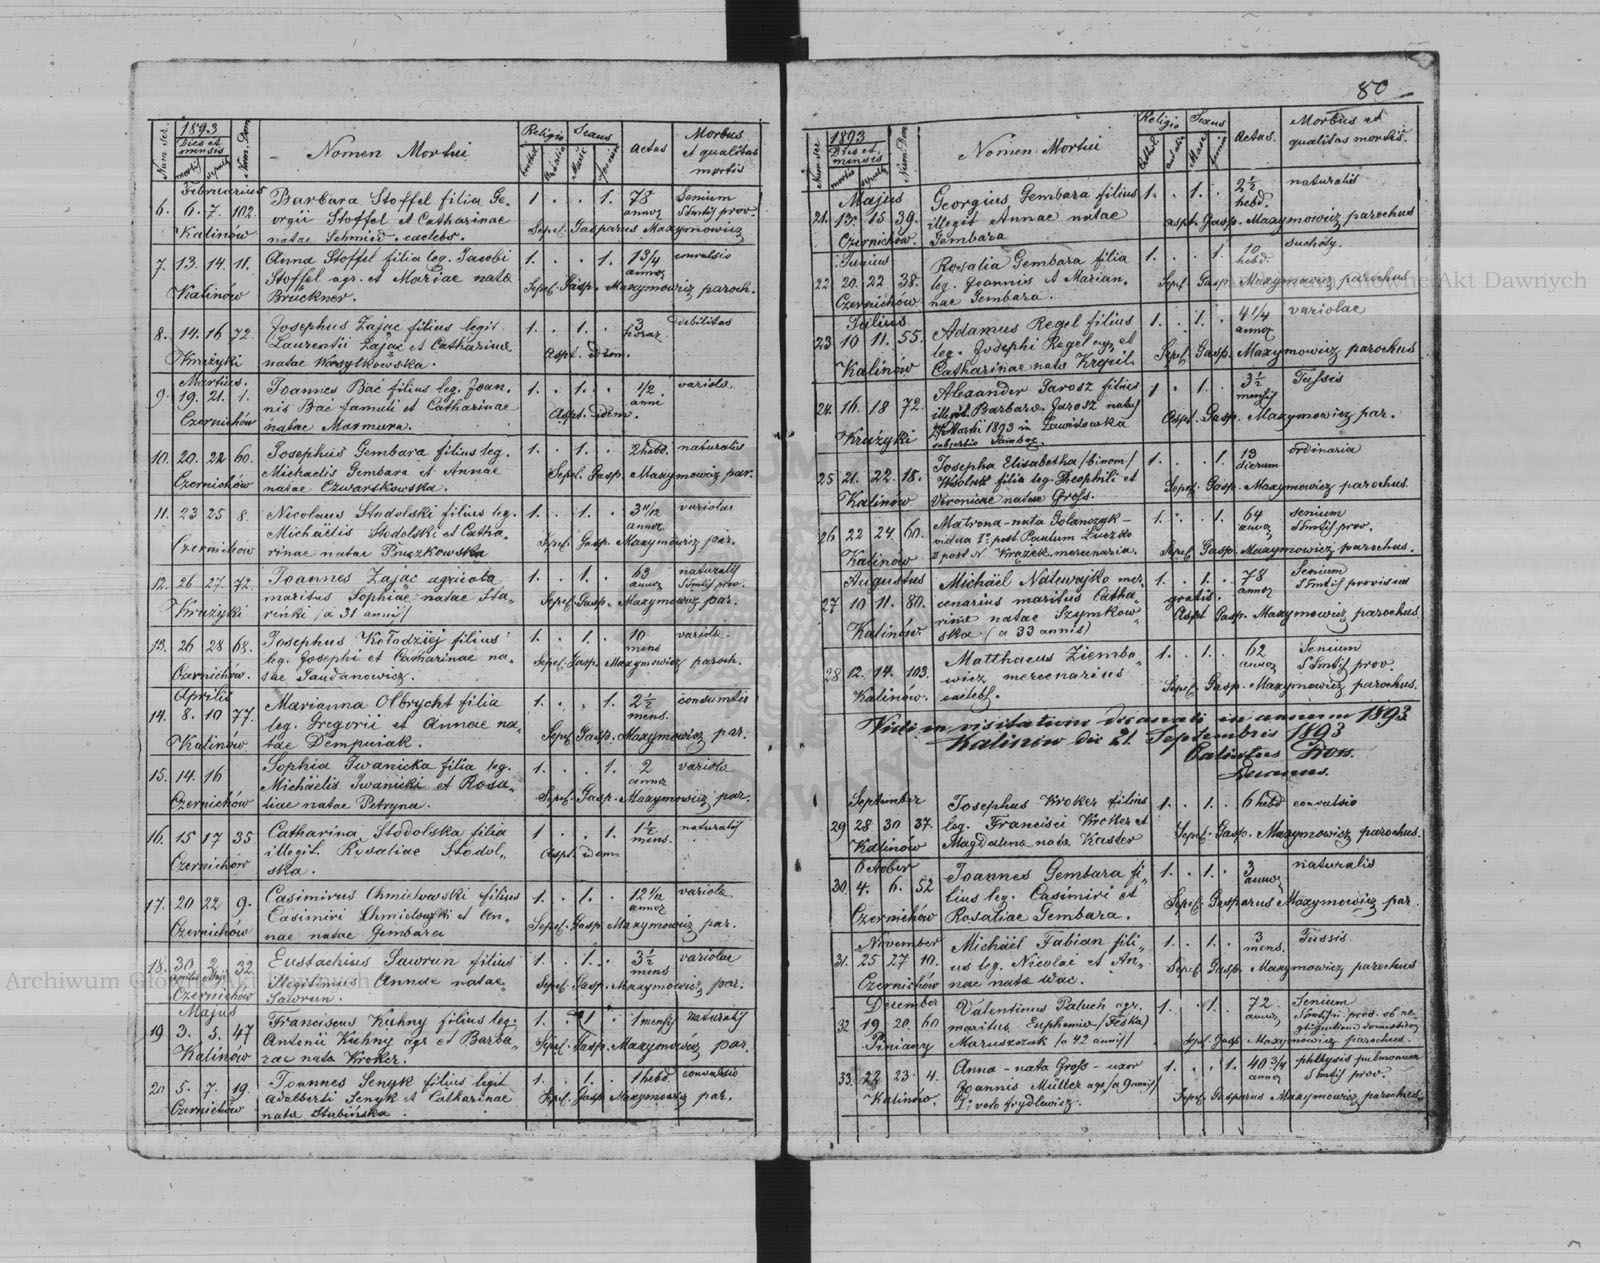 Num. Ser.
1893
Dies et
mensis
mortis
sepult.
Num. Dom.
Nomen Mortui
Religio
Sexus
Aetas
Morbus
et qualitas
mortis
Februarius
6. 6. 7. 102. Barbara Stoffel filia Ge- 1 . . 1. 78 annor. Senium
orgii Stoffel et Catharinae SSmtis prov.
Kalinów natae Schmied. caelebs. Sepel. Gasparus Maxymowicz
7. 13. 14. 11. Anna Stoffel filia leg. Jacobi 1. . . 1. 1 3/4 annor. convulsio
Stoffel agr. et Mariae nata
Kalinów Brückner. Sepel. Gasp. Maxymowicz paroch.
8. 14. 16 72. Josephus Zając filius legit. 1. . 1. . 3 horar. debilitas
Laurentii Zając et Catharinae
Kružyki natae Wasylkowska. Aspt. idem.
Martius.
9. 19. 21. 1. Joannes Bać filius leg. Joan- 1. . 1. . 1/2 anni variola
nis Bać famuli et Catharinae
Czernichów natae Marmura. Aspt. idem.
10. 20. 22 60. Josephus Gembara filius leg. 1. . 1. . 2 hebd. naturalis
Michaelis Gembara et Annae
Czernichów natae Czwartkowska. Sepel. Gasp. Maxymowicz par.
11. 23 25 8. Nicolaus Stodolski filius leg. 1. . 1. . annor. variolae
Michäelis Stodolski et Catha-
Czernichów rinae natae Pruszkowska Sepel. Gasp. Maxymowicz par.
12. 26 27. 72. Joannes Zając agricola 1. . 1. . 63 annor. naturalis
maritus Sophiae natae Sta- SSmtis prov.
Kružyki reńki /a 31 annis/ Sepel. Gasp. Maxymowicz par.
13. 26 28 68. Josephus Kołodziej filius 1. . 1. . 10 mens variola
leg. Josephi et Catharinae na-
Czernichów. tae Sawdanowicz. Sepel. Gasp. Maxymowicz paroch.
Aprilis
14. 8. 10 77. Marianna Olbrycht filia 1. . . 1 2 1/2 mens. consumtio
leg. Gregorii et Annae na-
Kalinów tae Dempniak. Sepel. Gasp. Maxymowicz par.
15. 14. 16 Sophia Iwanicka filia leg. 1. . . 1. 2 annor variola
Michäelis Iwanicki et Rosa-
Czernichów liae natae Petryna. Sepel. Gasp. Maxymowicz par.
16. 15 17 35 Catharina Stodolska filia 1 . . 1. 1 1/2 mens. naturalis
illegit. Rosaliae Stodol-
Czernichów ska. Aspt. idem
17. 20 22 9. Casimirus Chmielowski filius 1. . 1. . 12 1/2 annor variola
Casimiri Chmielowski et An-
Czernichów nae natae Gembara Sepel. Gasp. Maxymowicz par.
18. 30 Aprilis 2. Maji 32 Eustachius Sawrun filius 1. . 1. . 3 1/2 mens variolae
illegitimus Annae natae
Czernichów Sawrun. Sepel. Gasp. Maxymowicz par.
Majus
19 3. 5. 47 Franciscus Kuhny filius leg. 1. . 1 . 1 mensis naturalis
Antonii Kuhny agr et Barba-
Kalinów rae nata Kroker. Sepel. Gasp. Maxymowicz par.
20 5. 7. 19. Joannes Senyk filius legit 1. . 1. . 1 hebd. convulsio
Adalberti Senyk et Catharinae
Czernichów nata Stubińska. Sepel. Gasp. Maxymowicz par.
80
Num. Ser.
1893
Dies et
mensis
mortis
sepult.
Num. Dom.
Nomen Mortui
Religio
Sexus
Aetas.
Morbus et
qualitas mortis.
Majus
21. 13. 15 39. Georgius Gembara filius 1. . 1. . 2 1/2 hebd. naturalis
illegit Annae natae
Czernichów. Gembara Aspt. Gasp. Maxymowicz parochus
Junius
22 20. 22 38. Rosalia Gembara filia 1. . . 1. 10 hebd. suchoty.
leg. Joannis et Marian-
Czernichów nae Gembara. Sepel. Gasp. Maxymowicz parochus
Julius
23 10 11. 55. Adamus Regel filius 1. . 1. . 4 1/4 annor variolae
leg. Josephi Regel agr. et
Kalinów Catharinae nata Krepil Sepel. Gasp. Maxymowicz parochus
24. 16. 18 72. Alexander Jarosz filius 1 . 1. . 3 1/2 mensis Tussis
illegit. Barbara Jarosz natus
Martii 1893 in Zawidowka Aspt. Gasp. Maxymowicz par.
Kružyki
25 21. 22. 18. Josepha Elisabetha /binom/ 1. . . 1. 13 dierum ordinaria
filia leg. Theophili et
Kalinów Veronicae natae Gross. Sepel. Gasp. Maxymowicz parochus.
26 22 24. 60. Matrona nata Golanczyk - 1. . . 1. 64 annor senium
vidua Iº post Paulum Łuczko SSmtis prov.
Kalinów II post N. Krążek mercenaria. Sepel. Gasp. Maxymowicz parochus.
Augustus
27 10 11. 80. Michäel Nalewajko mer- 1. . 1. . 78 annor Senium
cenarius maritus Catha- gratis. SSmtis provisus
Kalinów. rinae natae Szymkow-
ska (a 33 annis) Aspt Gasp. Maxymowicz parochus
28 12. 14. 103. Matthaeus Ziembo- 1. . 1. . 62 annor Senium
wicz mercenarius SSmtis prov.
Kalinów. caelebs. Sepel. Gasp. Maxymowicz parochus.
Vidi in visitatione decanali in annum 1893
Kalinów die 21. Septembris 1893
Decanus.
September
29 28 30 37. Josephus Kroker filius 1. . 1. . 6 hebd convulsio
leg. Francisci Kroker et
Kalinów Magdalena nata Kaster Sepel. Gasp. Maxymowicz parochus.
October
30 4. 6. 52 Joannes Gembara fi- 1. . 1. . 3 annor naturalis
lius leg. Casimiri et
Czernichów Rosaliae Gembara. Sepel. Gasparus Maxymowicz par
November
31. 25 27 10. Michäel Fabian fili- 1. . 1. . 3 mens. Tussis
us leg. Nicolai et An-
Czernichów nae nata Wac. Sepel. Gasp. Maxymowicz parochus
December
32 19 20. 60 Valentinus Paluch agr. 1. . 1. . 72 annor Senium
maritus Euphemia /Feska/ SSmtis n. prov. ob ne-
Piniany Maruszczak /a 42 annis/ gligentiam domesticor
Sepel. Gasp. Maxymowicz parochus.
33. 22 23 4. Anna - nata Gross - uxor 1. . . 1. 40 3/4 annor phthysis pulmonum
Joannis Müller agr. /a 9 annis/ SSmtis prov.
Kalinów. Iº voto Frydlewicz. Sepel. Gasparus Maxymowicz parochus
Archiwum Główne Akt Dawnych
Archiwum Główne Akt Dawnych